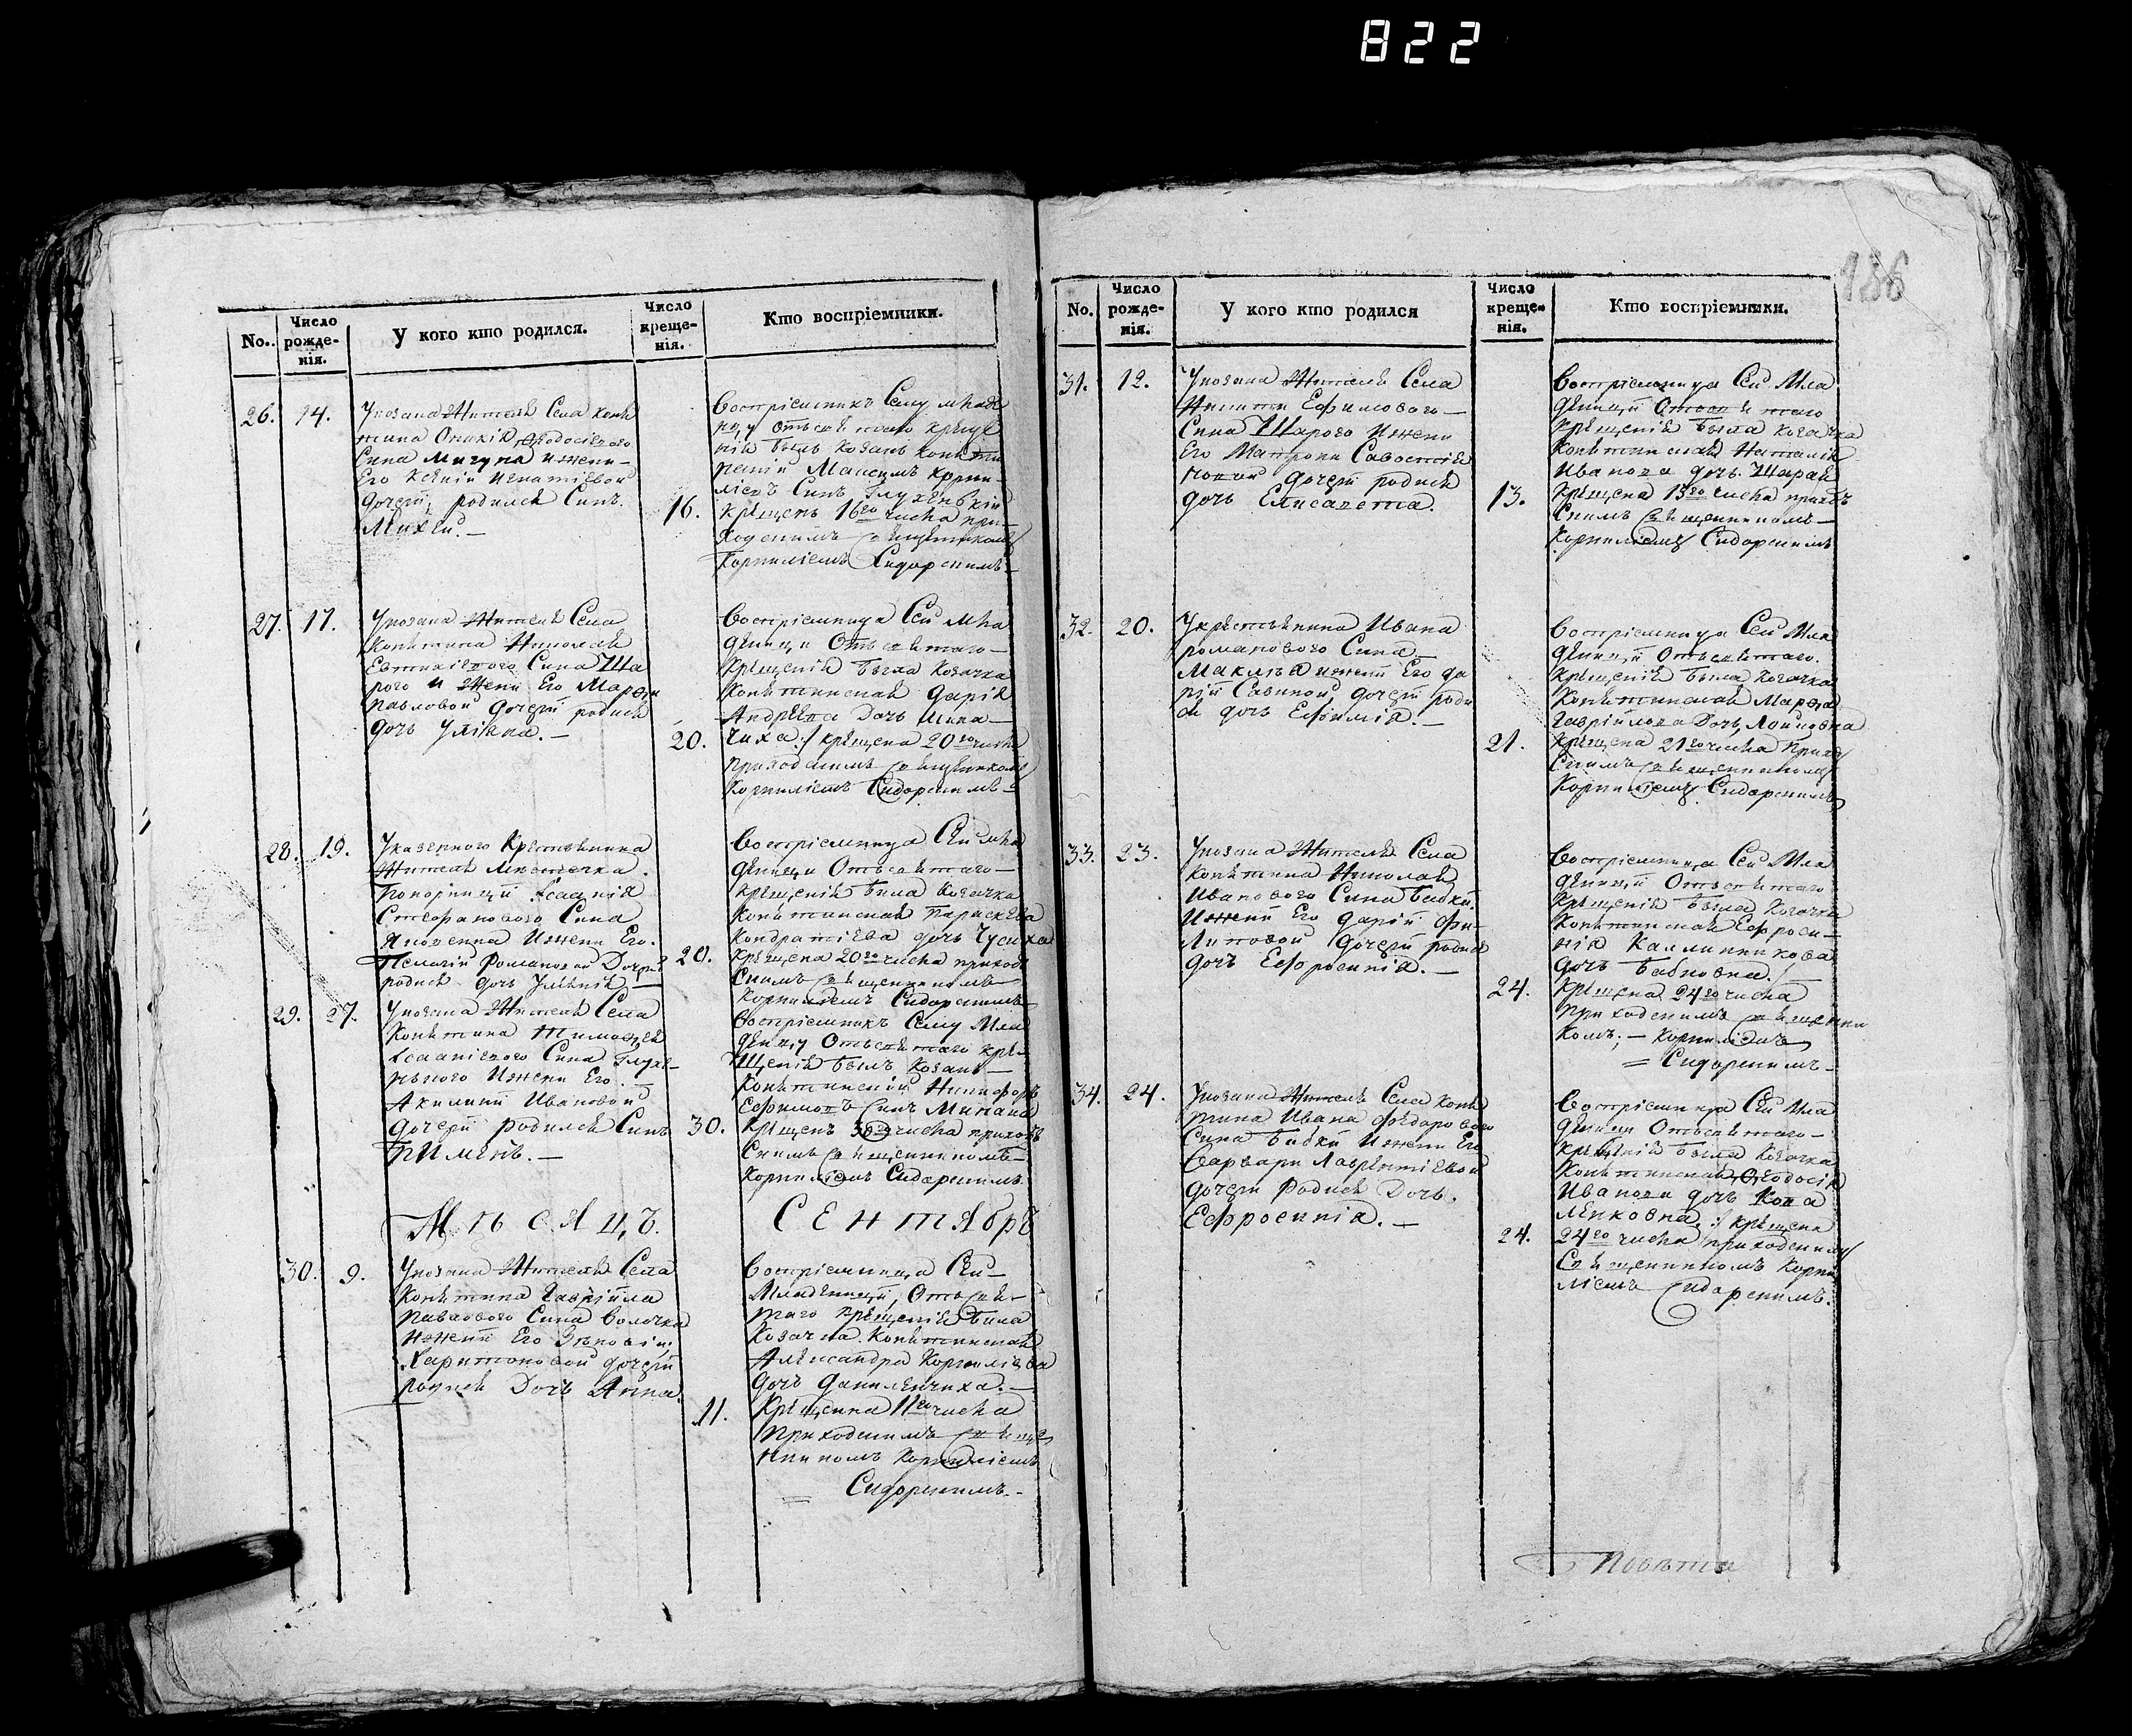 822
186
No.
Число рожде-нія.
У кого кто родился.
Число креще-нія.
Кто воспріемники.
26. 14.
Укозака Жителя Села Конѣ
тина
Сина Мигуна ижени
Его Ксѣніи Игнатіевой
дочери, родился Синъ.
Михѣй. —
Воспріемникъ Сему младе
нцу отъсвѣтаго креще
нія билъ Козакъ Конѣти
нскій Максимъ Корни-
ліевъ Синъ Глухенькій
16. Крещенъ 16го числа при-
ходскимъ священникомъ
Корниліемъ Сидорскимъ
27. 17.
Укозака Жителя Села
Конѣтина Николая
Сина Ша
рого и Жени Его Марѳи
Павловой дочери родися
дочь Уліяна. —
Воспріемница Сей мла
дѣници Отъсвѣтаго —
крещенія била Козачка
Конѣтинская Дарія
Андрѣева Дочь
20. крещена 20го числа
приходскимъ священникомъ
Корниліемъ Сидорскимъ
28. 19.
Указенного Крестянина
Жителя Мистечка
Понорници Ісаакія
Стефанового Сина
Яковенка Ижени Его.
Пелагіи Романовой Дочери
родися дочь
Воспріемница Сей мла
дѣници Отъсвѣтаго —
крещенія била Козачка
Конѣтинская Параскѣва
Кондратіева дочь
20. Крещена 20го числа приход
Скимъ священникомъ
Корниліемъ Сидорскимъ
29. 27.
Укозака Жителя Села
Конѣтина Тимофѣя
Ісаакіевого Сина Глухе-
нького Ижени Его. —
Акилини Ивановой
дочери родился Синъ
Пименъ. —
Воспріемникъ Сему Мла
дѣнцу Отъсвѣтаго кре-
щенія билъ Козакъ —
Конѣтинскій Никифоръ
Ефимовъ Синъ
30. Крещенъ 30го числа приход
Скимъ священникомъ
Корниліемъ Сидорскимъ
Мѣсяцъ. Сентябрь
30. 9.
Укозака Жителя Села
Конѣтина Гавріила
Павлового Сина Волочка
Ижени Его Зѣновіи
Харитоновой дочери
родися Дочь Анна.
Воспріемница Сей —
Младеници, Отъсвѣ-
таго крещенія била
Козачка Конѣтинская
Александра Корниліева
дочь Данилѣнчиха. —
11. Крещена 11го числа
Приходскимъ свяще
нникомъ Корниліемъ
= Сидорскимъ. -
No.
Число рожде-нія.
У кого кто родился
Число креще-нія.
Кто воспріемники.
31. 12.
Укозака Жителя Села
Никити Ефимового —
Сина Шарого Ижени
Его Матрони Савостія
новой дочери родися
дочь Елисавета.
Воспріемница Сей Мла
дѣници Отъсвѣтаго
крещенія била Козачка
Конѣтинская Наталія
Иванова дочь Шарая
13. Крещена 13го числа приход
Скимъ священникомъ —
Корниліемъ Сидорскимъ
32. 20.
Укрестьянина Ивана
Романового Сина —
ижени Его Да
ріи Савиной дочери роди
ся дочь Ефимія. —
Воспріемница Сей Мла
дѣници Отъсвѣтаго.
крещенія била Козачка
Конѣтинская Марѳа
Гаврійлова Дочь
21. Крещена 21го числа Приход
Скимъ священникомъ
Корниліемъ Сидорскимъ
33. 23.
Укозака Жителя Села
Конѣтина Николая
Иванового Сина Бабки.
Ижени Его Даріи Фи-
липовой дочери родися
дочь Ефросинія. —
Воспріемница Сей Мла
дѣници Отъсвѣтаго
Крещенія била Козачка
Конѣтинская Ефроси-
нія Каллиникова
дочь Бабковна /
24. Крещена 24го числа
Приходскимъ священни
комъ; — Корниліемъ
= Сидорскимъ —
34. 24.
Укозака Жителя Села Конѣ
тина Ивана Фѣдорового
Сина Бабки Ижени Его
Варвари Лаврентіевой
дочери Родися Дочь.
Ефросинія. —
Воспріемница Сей Мла
дѣници Отъсвѣтаго —
крещенія била Козачка
Конѣтинская Ѳеодосія
Иванова дочь Кова
лѣнковна / крещена
24. 24го числа приходскимъ
Священникомъ Корни
ліемъ Сидорскимъ.